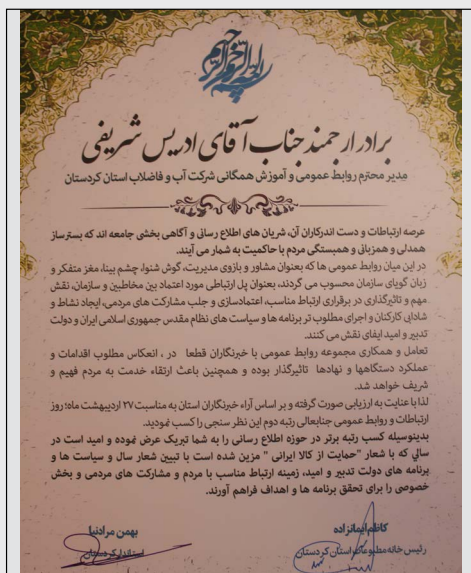 بسم الله الرحمن الرحیم
برادر ارجمند جناب آقای ادریس شریفی
مدیر محترم روابط عمومی و آموزش همگانی شرکت آب و فاضلاب استان کردستان
عرصه ارتباطات و دست اندرکاران آن، شریان های اطلاع رسانی و آگاهی بخشی جامعه اند که بسترساز
همدلی و همزبانی و همبستگی مردم با حاکمیت به شمار می آیند.
در این میان روابط عمومی ها که بعنوان مشاور و بازوی مدیریت، گوش شنوا، چشم بینا، مغز متفکر و
زبان گویای سازمان محسوب می گردند، بعنوان پل ارتباطی مورد اعتماد بین مخاطبین و سازمان، نقش
مهم و تاثیرگذاری در برقراری ارتباط مناسب، اعتمادسازی و جلب مشارکت های مردمی، ایجاد نشاط و
شادابی کارکنان و اجرای مطلوب تر برنامه ها و سیاست های نظام مقدس جمهوری اسلامی ایران و دولت
تدبیر و امید ایفای نقش می کنند.
تعامل و همکاری مجموعه روابط عمومی با خبرنگاران قطعا در ، انعکاس مطلوب اقدامات و
عملکرد دستگاهها و نهادها تاثیرگذار بوده و همچنین باعث ارتقاء خدمت به مردم فهیم و
شریف خواهد شد.
لذا با عنایت به ارزیابی صورت گرفته و بر اساس آراء خبرنگاران استان به مناسبت ۲۷ اردیبهشت ماه؛ روز
ارتباطات و روابط عمومی جنابعالی رتبه دوم این نظر سنجی را کسب نمودید.
بدینوسیله کسب رتبه برتر در حوزه اطلاع رسانی را به شما تبریک عرض نموده و امید است در
سالی که با شعار "حمایت از کالا ایرانی " مزین شده است با تبیین شعار سال و سیاست ها و
برنامه های دولت تدبیر و امید، زمینه ارتباط مناسب با مردم و مشارکت های مردمی و بخش
خصوصی را برای تحقق برنامه ها و اهداف فراهم آورند.
کاظم ایمانزاده
رئیس خانه مطبوعات استان کردستان
بهمن مرادنیا
استاندار کردستان